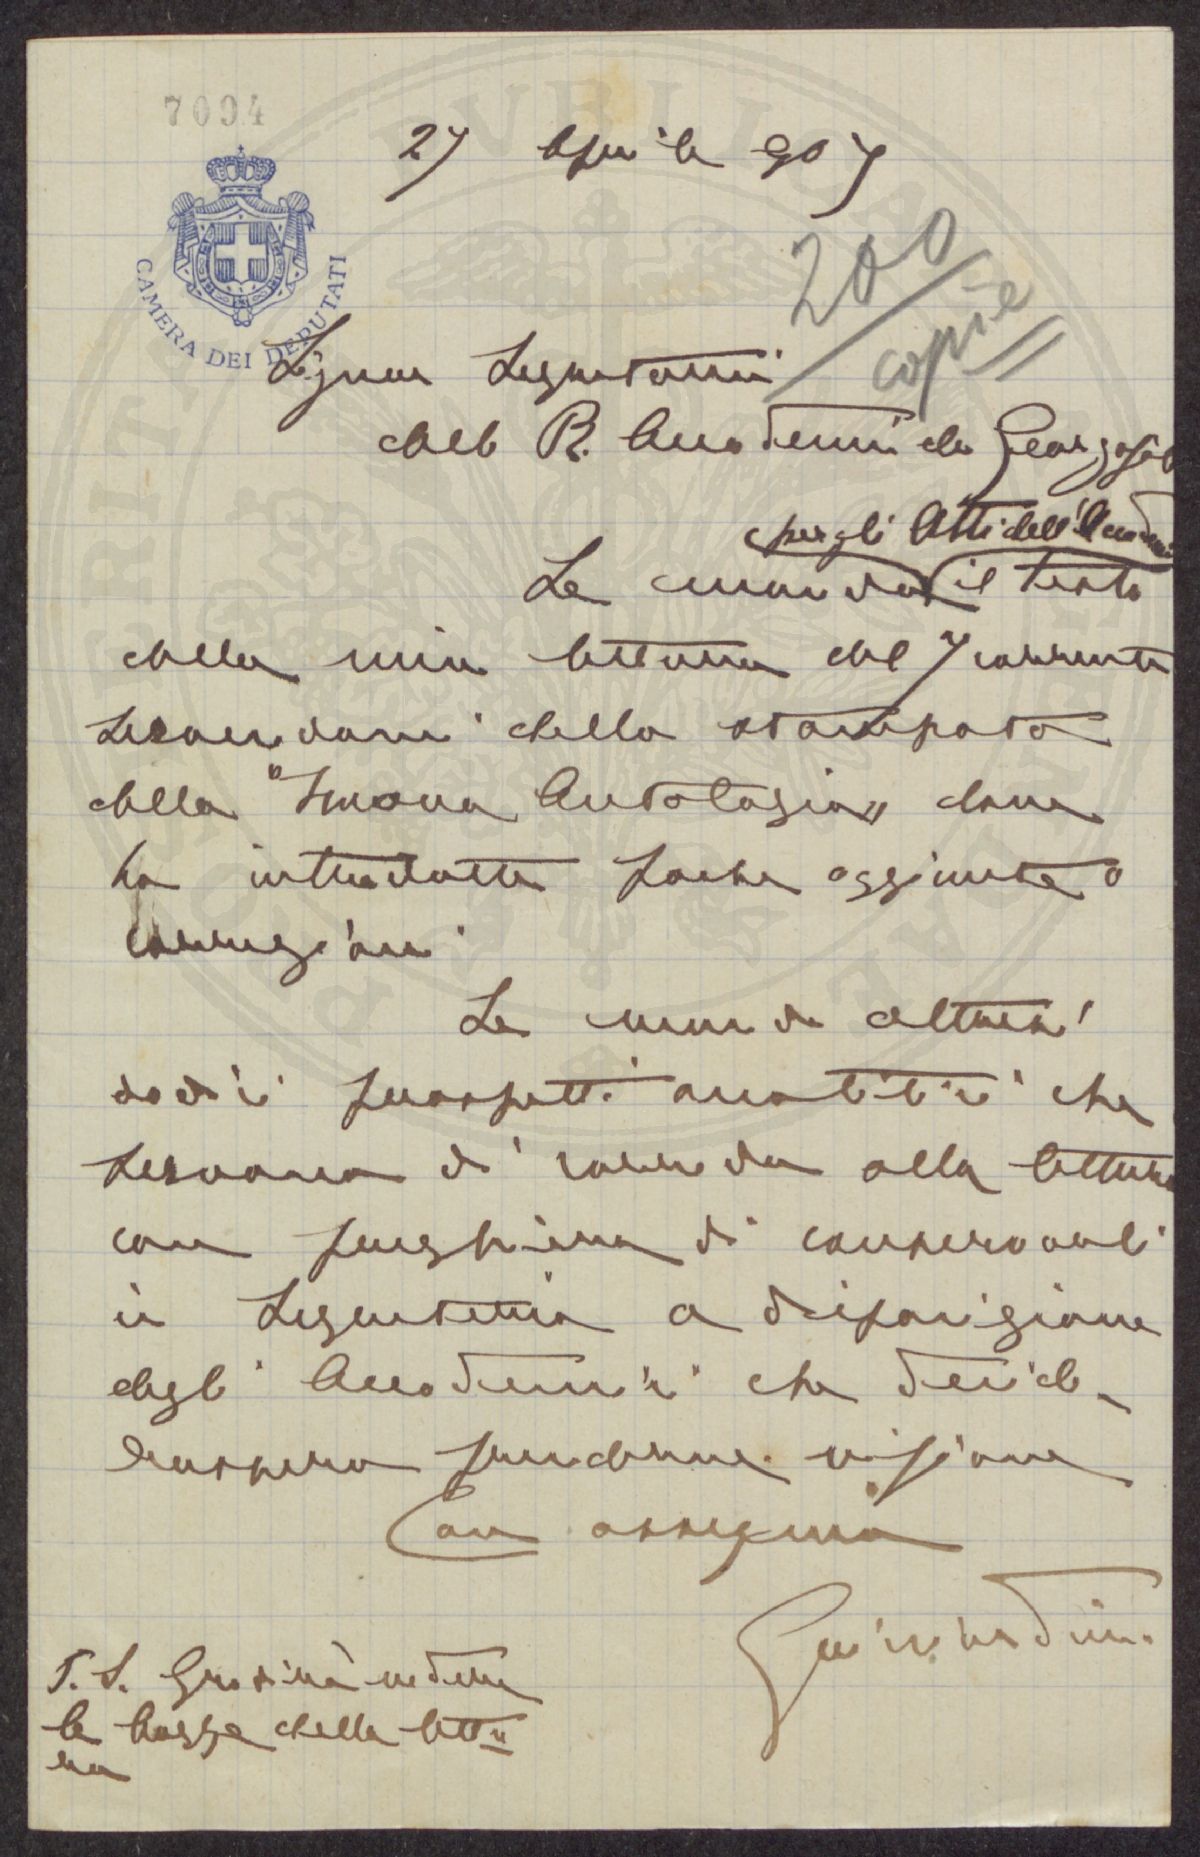 7094
27 Aprile 907
CAMERA DEI DEPUTATI
200
copie
Signor Segretario
della R. Accademia dei Georgofili
per gli Atti dell'Accademia
Le mando il testo
della mia lettura del 7 corrente
servendomi della stampata
della "Nuova Antologia" dove
ho introdotte poche aggiunte o
correzioni
Le mando altresì
dodici prospetti analitici che
servono di corredo alla lettura
con preghiera di conservarli
in Segreteria a disposizione
degli Accademici che deside-
rassero prenderne visione
Con ossequio
Guicciardini
P.S. Gradirò vedere
le bozze della lettu
ra